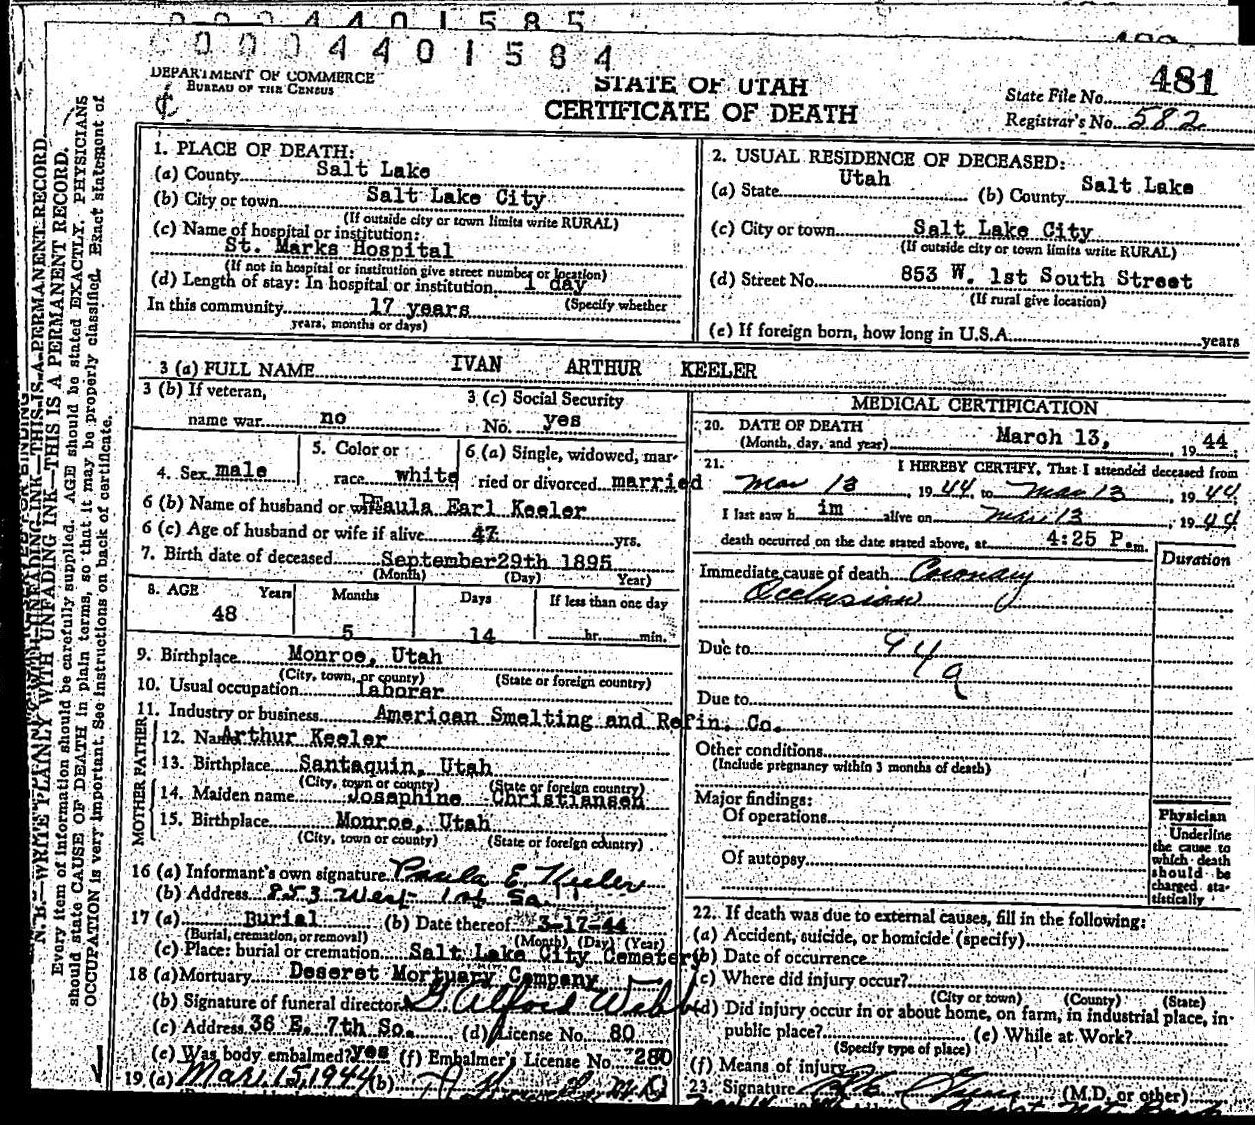 0004401585
0004401584
DEPARTMENT OF COMMERCE
BUREAU OF THE CENSUS
STATE OF UTAH
CERTIFICATE OF DEATH
State File No. 481
Registrar's No. 582
N. B.—WRITE PLAINLY WITH UNFADING INK—THIS IS A PERMANENT RECORD.
Every item of information should be carefully supplied. AGE should be stated EXACTLY. PHYSICIANS
should state CAUSE OF DEATH in plain terms, so that it may be properly classified. Exact statement of
OCCUPATION is very important. See instructions on back of certificate.
1. PLACE OF DEATH:
(a) County Salt Lake
(b) City or town Salt Lake City
(If outside city or town limits write RURAL)
(c) Name of hospital or institution:
St. Marks Hospital
(If not in hospital or institution give street number or location)
(d) Length of stay: In hospital or institution 1 day
(Specify whether
In this community 17 years
years, months or days)
2. USUAL RESIDENCE OF DECEASED:
(a) State Utah (b) County Salt Lake
(c) City or town Salt Lake City
(If outside city or town limits write RURAL)
(d) Street No. 853 W. 1st South Street
(If rural give location)
(e) If foreign born, how long in U.S.A. years
3 (a) FULL NAME IVAN ARTHUR KEELER
3 (b) If veteran,
name war no
3 (c) Social Security
No. yes
4. Sex male
5. Color or
race white
6 (a) Single, widowed, mar-
ried or divorced married
6 (b) Name of husband or wife Paula Earl Keeler
6 (c) Age of husband or wife if alive 47 yrs.
7. Birth date of deceased September 29th 1895
(Month) (Day) Year)
8. AGE Years Months Days If less than one day
48 5 14 hr. min.
9. Birthplace Monroe, Utah
(City, town, or county) (State or foreign country)
10. Usual occupation laborer
11. Industry or business American Smelting and Refin. Co.
FATHER
12. Name Arthur Keeler
13. Birthplace Santaquin, Utah
(City, town or county) (State or foreign country)
MOTHER
14. Maiden name Josephine Christiansen
15. Birthplace Monroe, Utah
(City, town or county) (State or foreign country)
16 (a) Informant's own signature Paula E. Keeler
(b) Address 853 West 1st So.
17 (a) Burial (b) Date thereof 3-17-44
(Burial, cremation, or removal) (Month) (Day) (Year)
(c) Place: burial or cremation Salt Lake City Cemetery
18 (a) Mortuary Deseret Mortuary Company
(b) Signature of funeral director G Alford Webb
(c) Address 36 E. 7th So. (d) License No. 80
(e) Was body embalmed? yes (f) Embalmer's License No. 280
19. (a) Mar. 15, 1944 (b)
MEDICAL CERTIFICATION
20. DATE OF DEATH
(Month, day, and year) March 13, 1944
21. I HEREBY CERTIFY, That I attended deceased from
Mar 13, 1944 to Mar 13, 1944
I last saw h im alive on Mar 13, 1944
death occurred on the date stated above, at 4:25 P. m.
Duration
Immediate cause of death Coronary
Occlusion
Due to 94a
Due to
Other conditions
(Include pregnancy within 3 months of death)
Major findings:
Of operations
Of autopsy
Physician
Underline
the cause to
which death
should be
charged sta-
tistically
22. If death was due to external causes, fill in the following:
(a) Accident, suicide, or homicide (specify)
(b) Date of occurrence
(c) Where did injury occur?
(City or town) (County) (State)
(d) Did injury occur in or about home, on farm, in industrial place, in
public place? (e) While at Work?
(Specify type of place)
(f) Means of injury
23. Signature (M.D. or other)